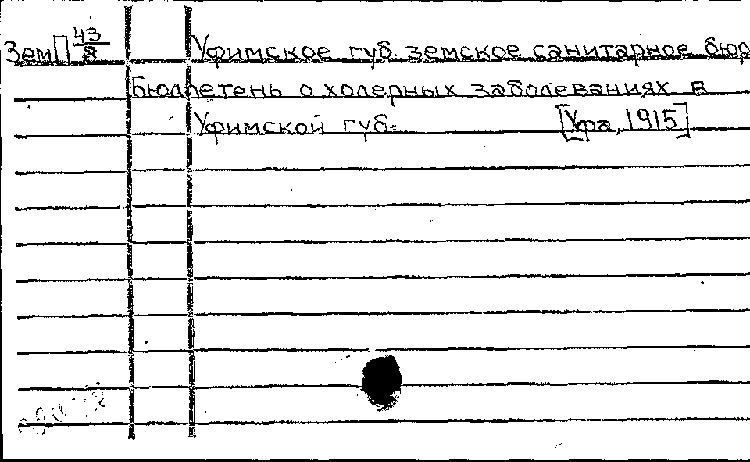 ЗемП 43/8 Уфимское губ. земское санитарное бюр
Бюллетень о холерных заболеваниях в
Уфимской губ. [Уфа, 1915]